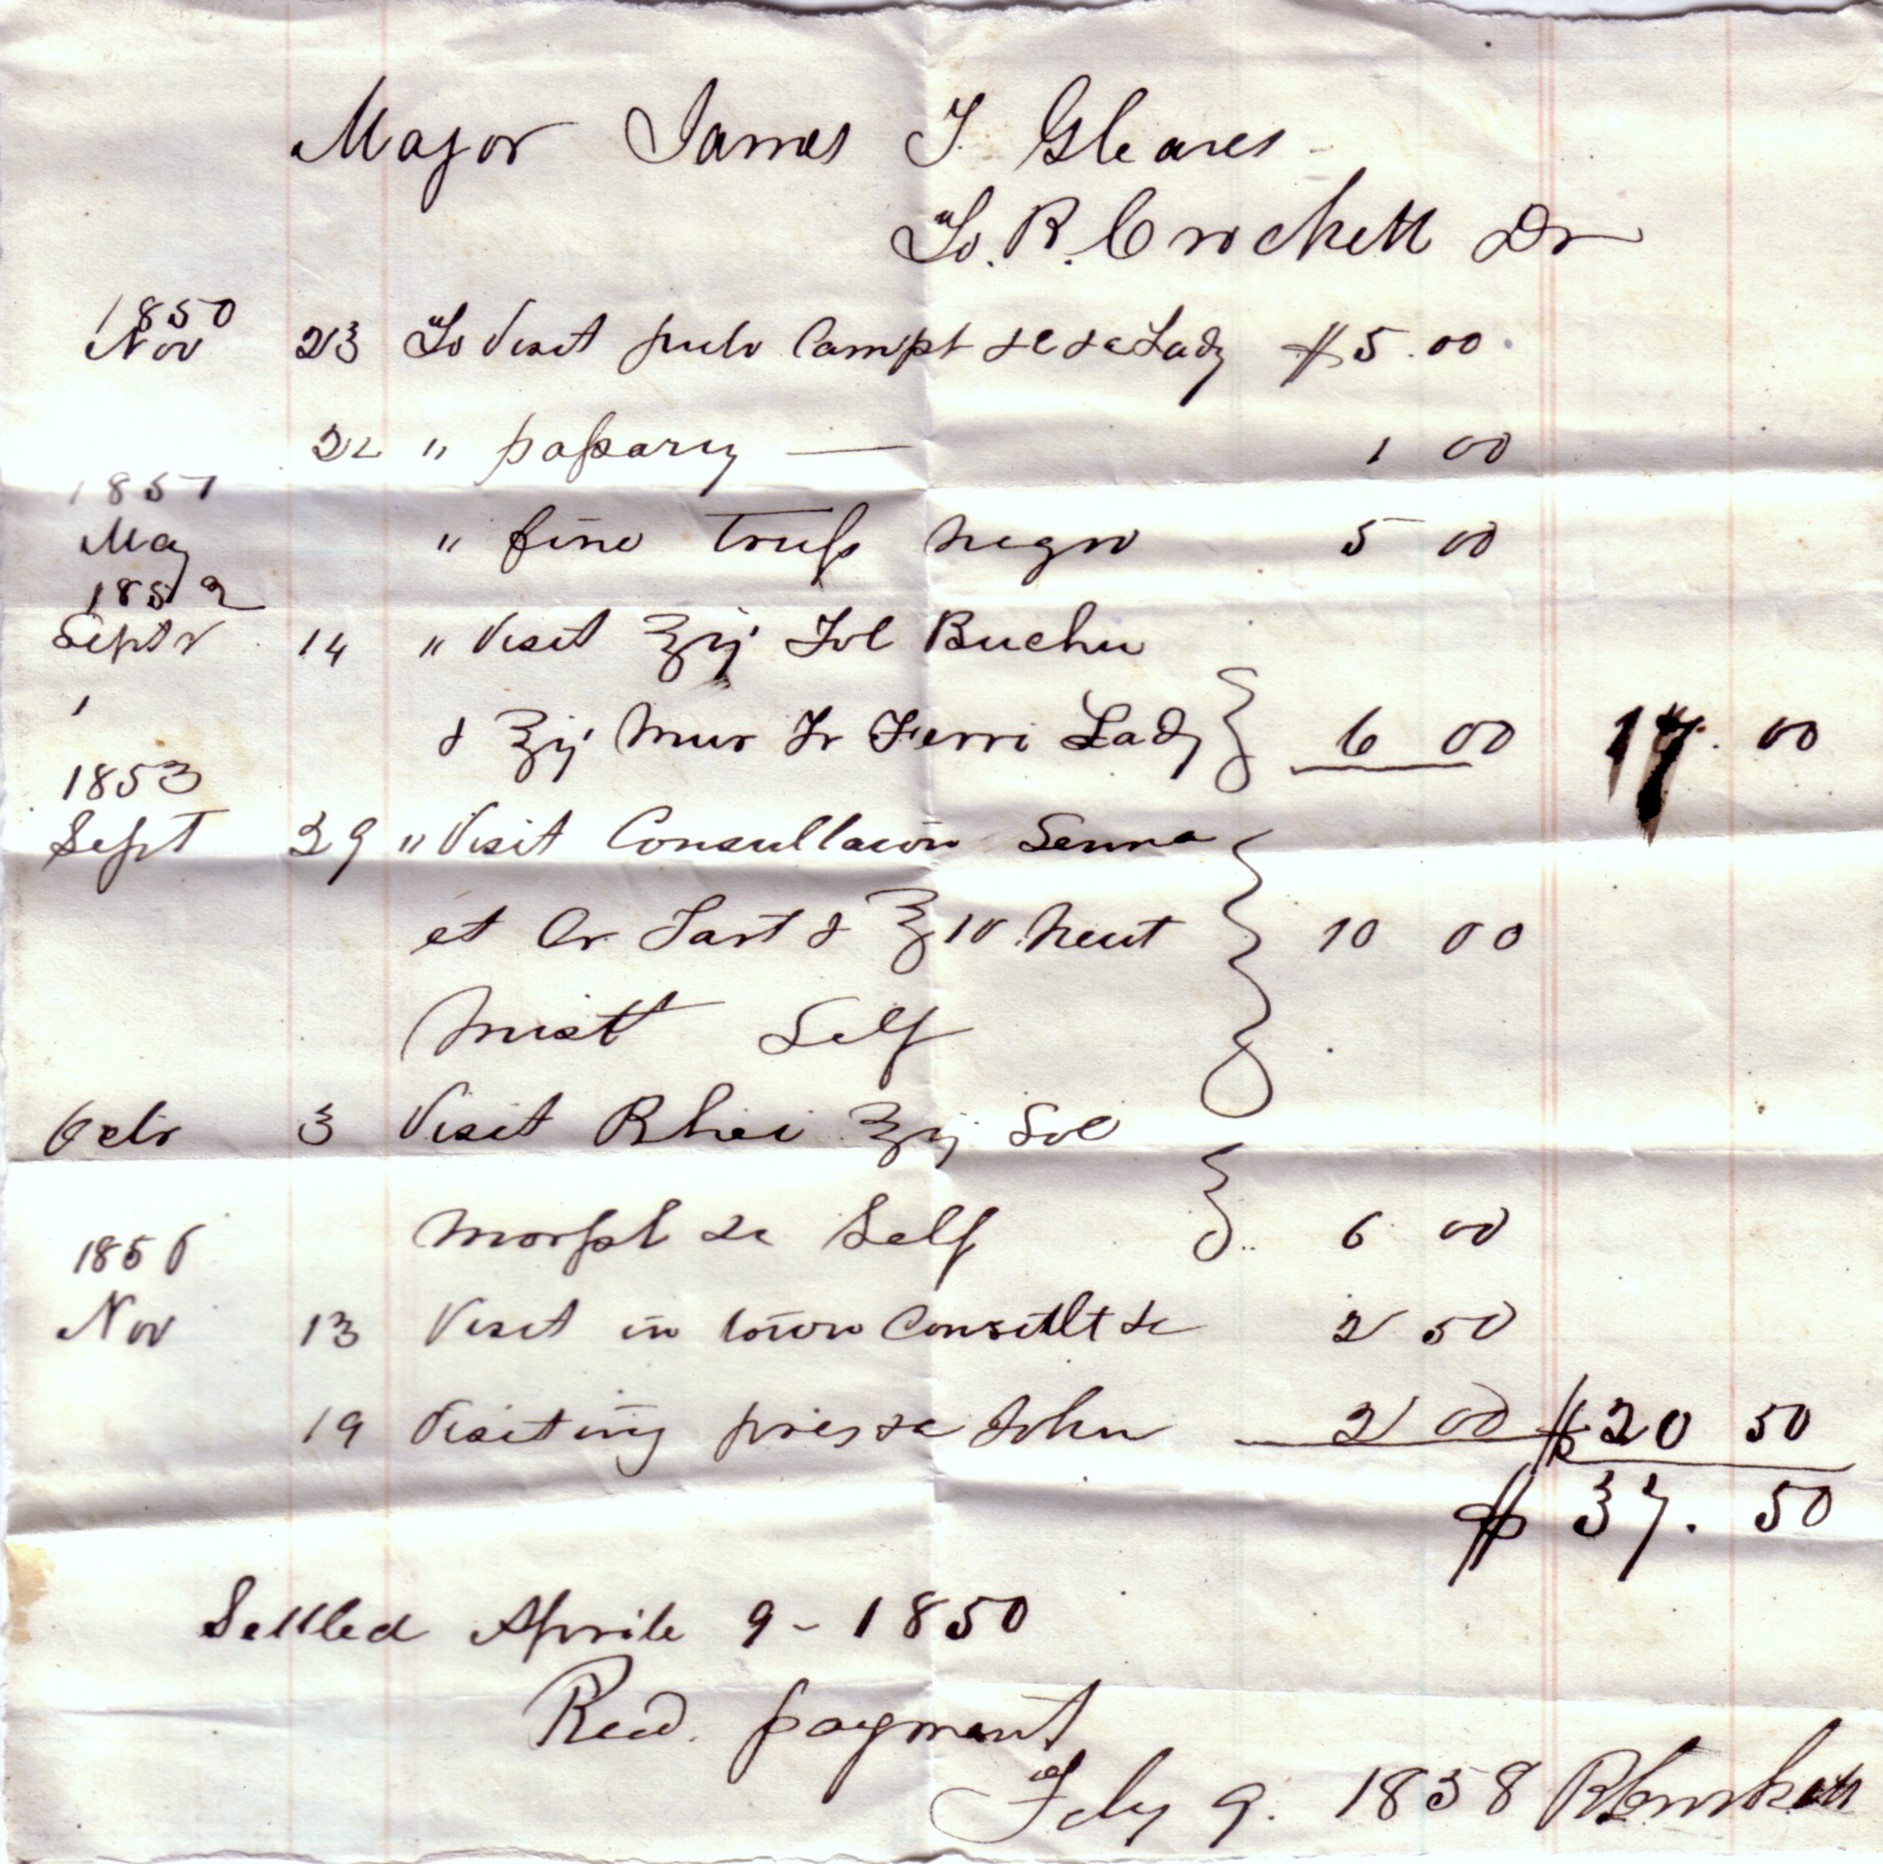 Major James T. Gleaves
To. R. Crockett Dr
1850
Nov 23 To Visit pulv Campt &c &c Lady $5.00
22 " 1 00
1851
May " fine Truss negro 5 00
1852
Septr 14 " Visit ℥ij Fol Buchu
& ℥ij Mur Tr Ferri Lady } 6 00 17.00
1853
Sept 29 " Visit Consultacion Senna
et Cr Tart & ℥10 Neut } 10 00
Mist Self
Octr 3 Visit Rhei ℥ij Sol
Morph &c Self } 6 00
1856
Nov 13 Visit in town Consult &c 2 50
19 Visiting pres &c John 2 00 $20 50
$37.50
Settled Aprile 9 - 1850
Recd. payment
Feby 9. 1858 R Crockett